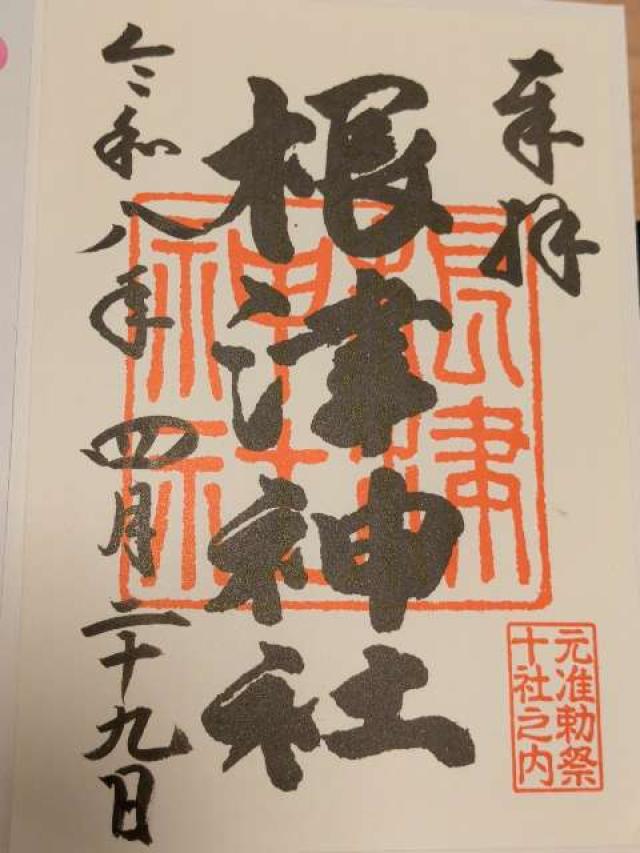 奉拝
根津神社
令和八年四月二十九日
根津神社
元准勅祭
十社之内